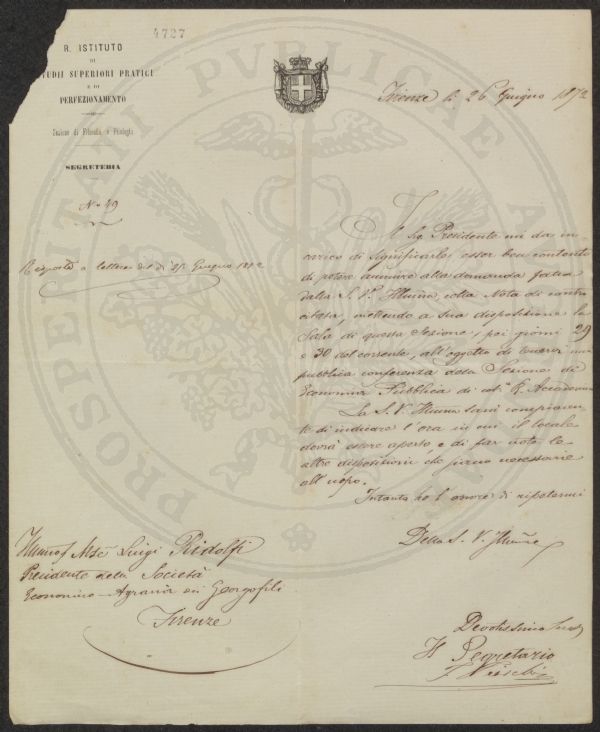 4727
R. ISTITUTO
DI
STUDII SUPERIORI PRATICI
E DI
PERFEZIONAMENTO
Sezione di Filosofia e Filologia
SEGRETERIA
N.o 49
Firenze li 26 Giugno 1872
Risposta a lettera del dì 25 Giugno 1872
Il Sig. Presidente mi da in-
carico di significarle, esser ben contento
di potere annuire alla domanda fatta
dalla S. V. Illma, colla Nota di contro
citata, mettendo a sua disposizione la
Sala di questa Sezione, pei giorni 29
e 30 del corrente, all'oggetto di tenervi una
pubblica conferenza della Sezione di
Economia Pubblica di cot.a R. Accademia
La S. V. Illma sarà compiacen-
te di indicare l'ora in cui il locale
dovrà essere aperto, e di far note le
altre disposizioni che siano necessarie
all'uopo.
Intanto ho l'onore di ripetermi
Della S. V. Illma
Illmo Sig. Mse Luigi Ridolfi
Presidente della Società
Economico-Agraria dei Georgofili
Firenze
Devotissimo
Il Segretario
PROSPERITATI PVBLICAE